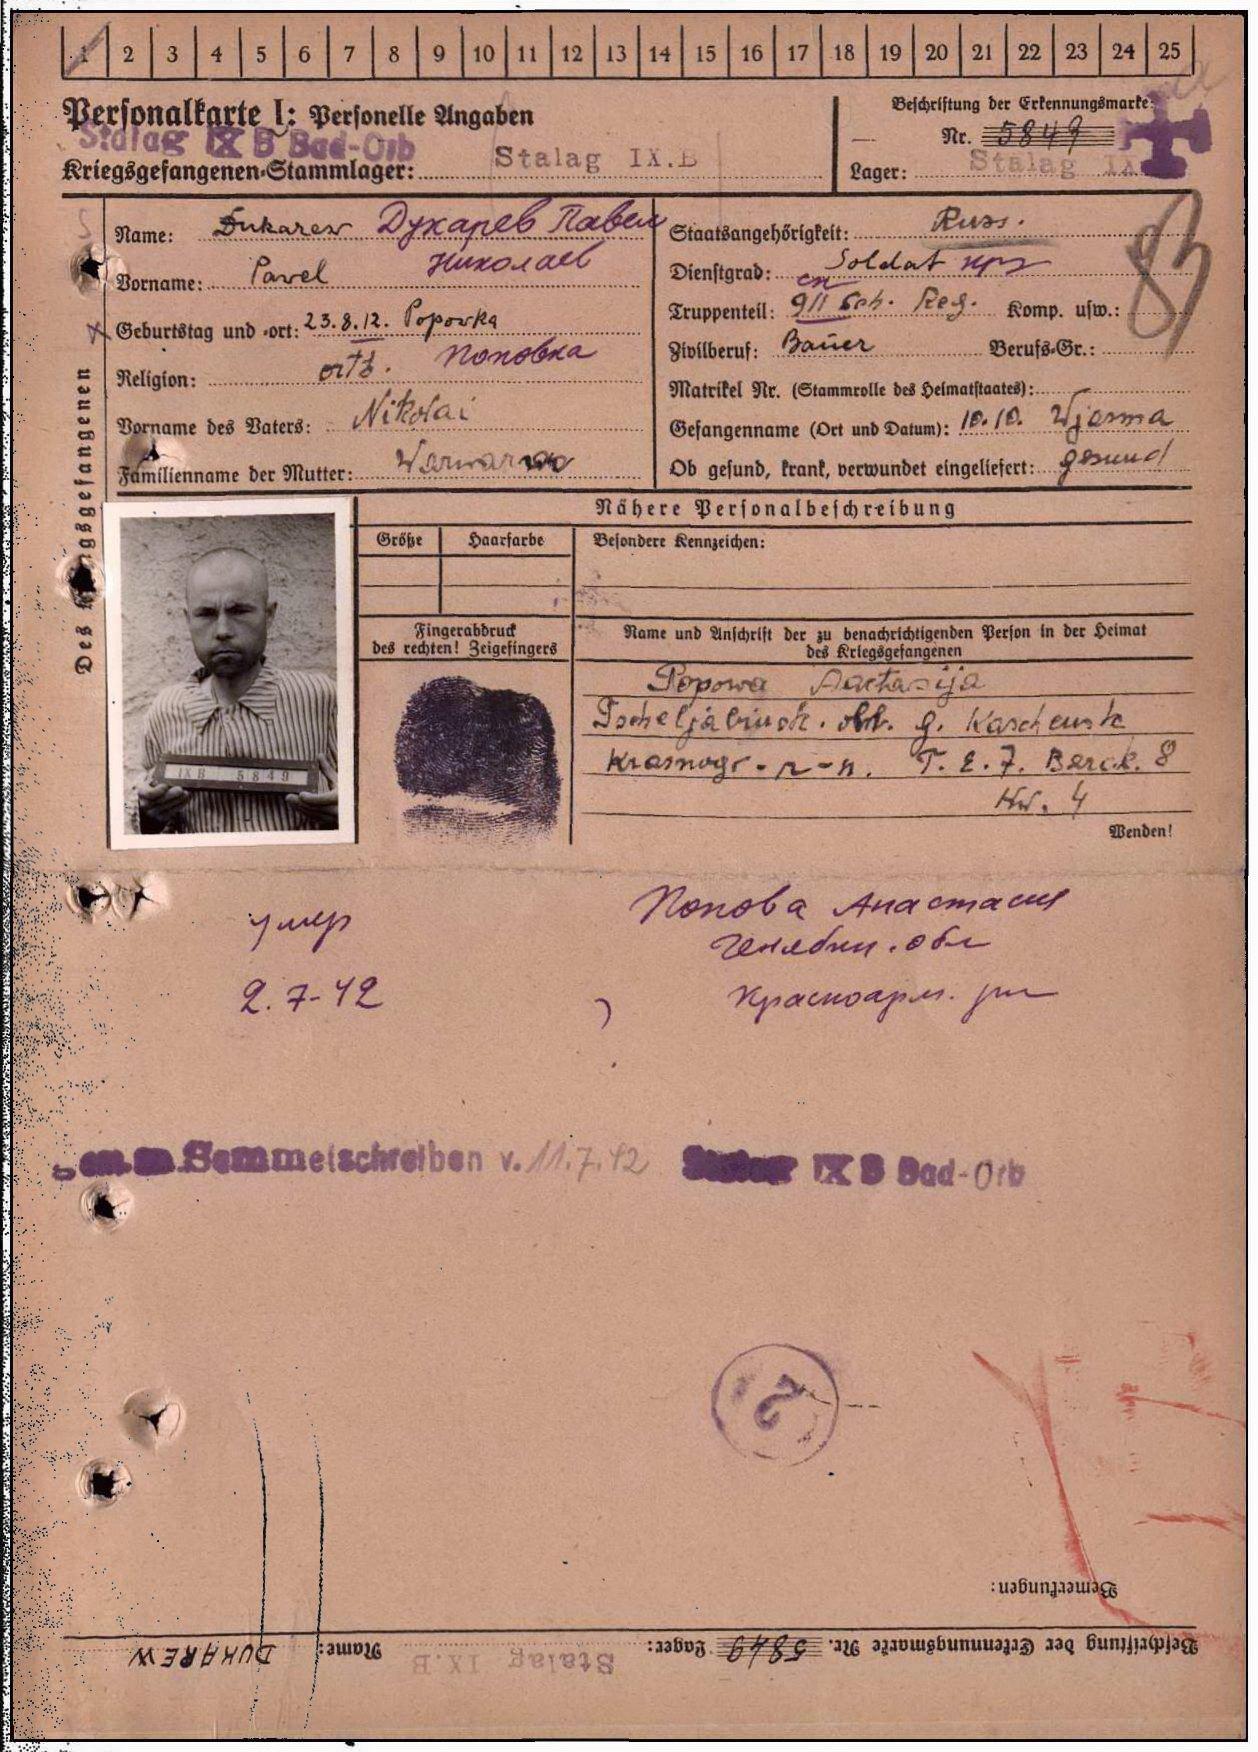 1 2 3 4 5 6 7 8 9 10 11 12 13 14 15 16 17 18 19 20 21 22 23 24 25
Personalkarte I: Personelle Angaben
Stalag IX B Bad-Orb
Kriegsgefangenen-Stammlager: Stalag IX.B
Beschriftung der Erkennungsmarke:
Nr. 5849
Lager: Stalag IX
Des Kriegsgefangenen
Name: Dukarew Духарев Павел
Николаев
Vorname: Pavel
Geburtstag und -ort: 23.8.12. Popowka
Поповка
Religion: orth.
Vorname des Vaters: Nikolai
Familienname der Mutter:
Staatsangehörigkeit: Russ.
Dienstgrad: Soldat кр
Truppenteil: 911 Sch. Reg. Komp. usw.:
сп
83
Zivilberuf: Bauer Berufs-Gr.:
Matrikel Nr. (Stammrolle des Heimatstaates):
Gefangenname (Ort und Datum): 10.10. Wjasma
Ob gesund, krank, verwundet eingeliefert: gesund
Nähere Personalbeschreibung
Größe Haarfarbe Besondere Kennzeichen:
IX B 5849
Fingerabdruck
des rechten! Zeigefingers
Name und Anschrift der zu benachrichtigenden Person in der Heimat
des Kriegsgefangenen
Popowa Anastasija
Tscheljabinsk. obl. g.
Krasnogr-r-n. T. E. 7. Barak. 8
Kw. 4
Wenden!
умер
2.7-42
Попова Анастасия
Челябин. обл
Красноарм. рн
Sammelschreiben v. 11.7.42 IX B Bad-Orb
2
Bemerkungen:
Beschriftung der Erkennungsmarke Nr. 5849 Lager: Stalag IX.B Name: DUKAREW